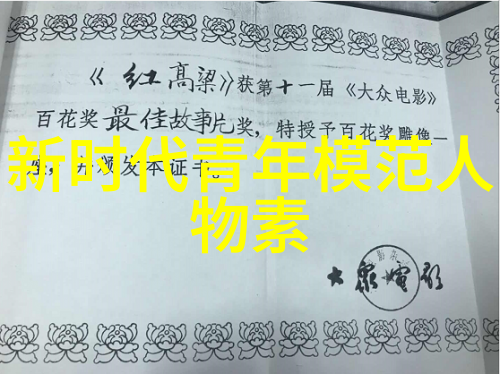 《红高粱》获第十一届《大众电影》
百花奖最佳故事片奖，特授予百花奖雕像一
座，并颁发本证书。
新时代青年模范人
物素
大众电影